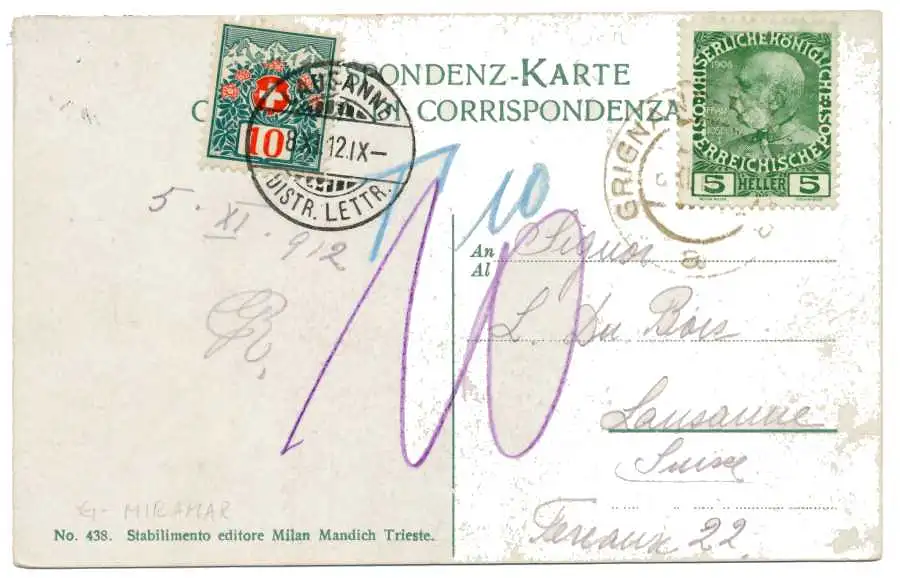 CORRESPONDENZ-KARTE
CARTOLINA DI CORRISPONDENZA
10
LAUSANNE
8.XI.12.IX-
DISTR. LETTR.
KAISERLICHE KÖNIGLICHE ÖSTERREICHISCHE POST
1908
5 HELLER 5
GRIGNANO
a
T 10
10
5. XI. 912
An
Al
Signor
L. Du Bois
Lausanne
Suisse
Terreaux 22.
G. MIRAMAR
No. 438. Stabilimento editore Milan Mandich Trieste.